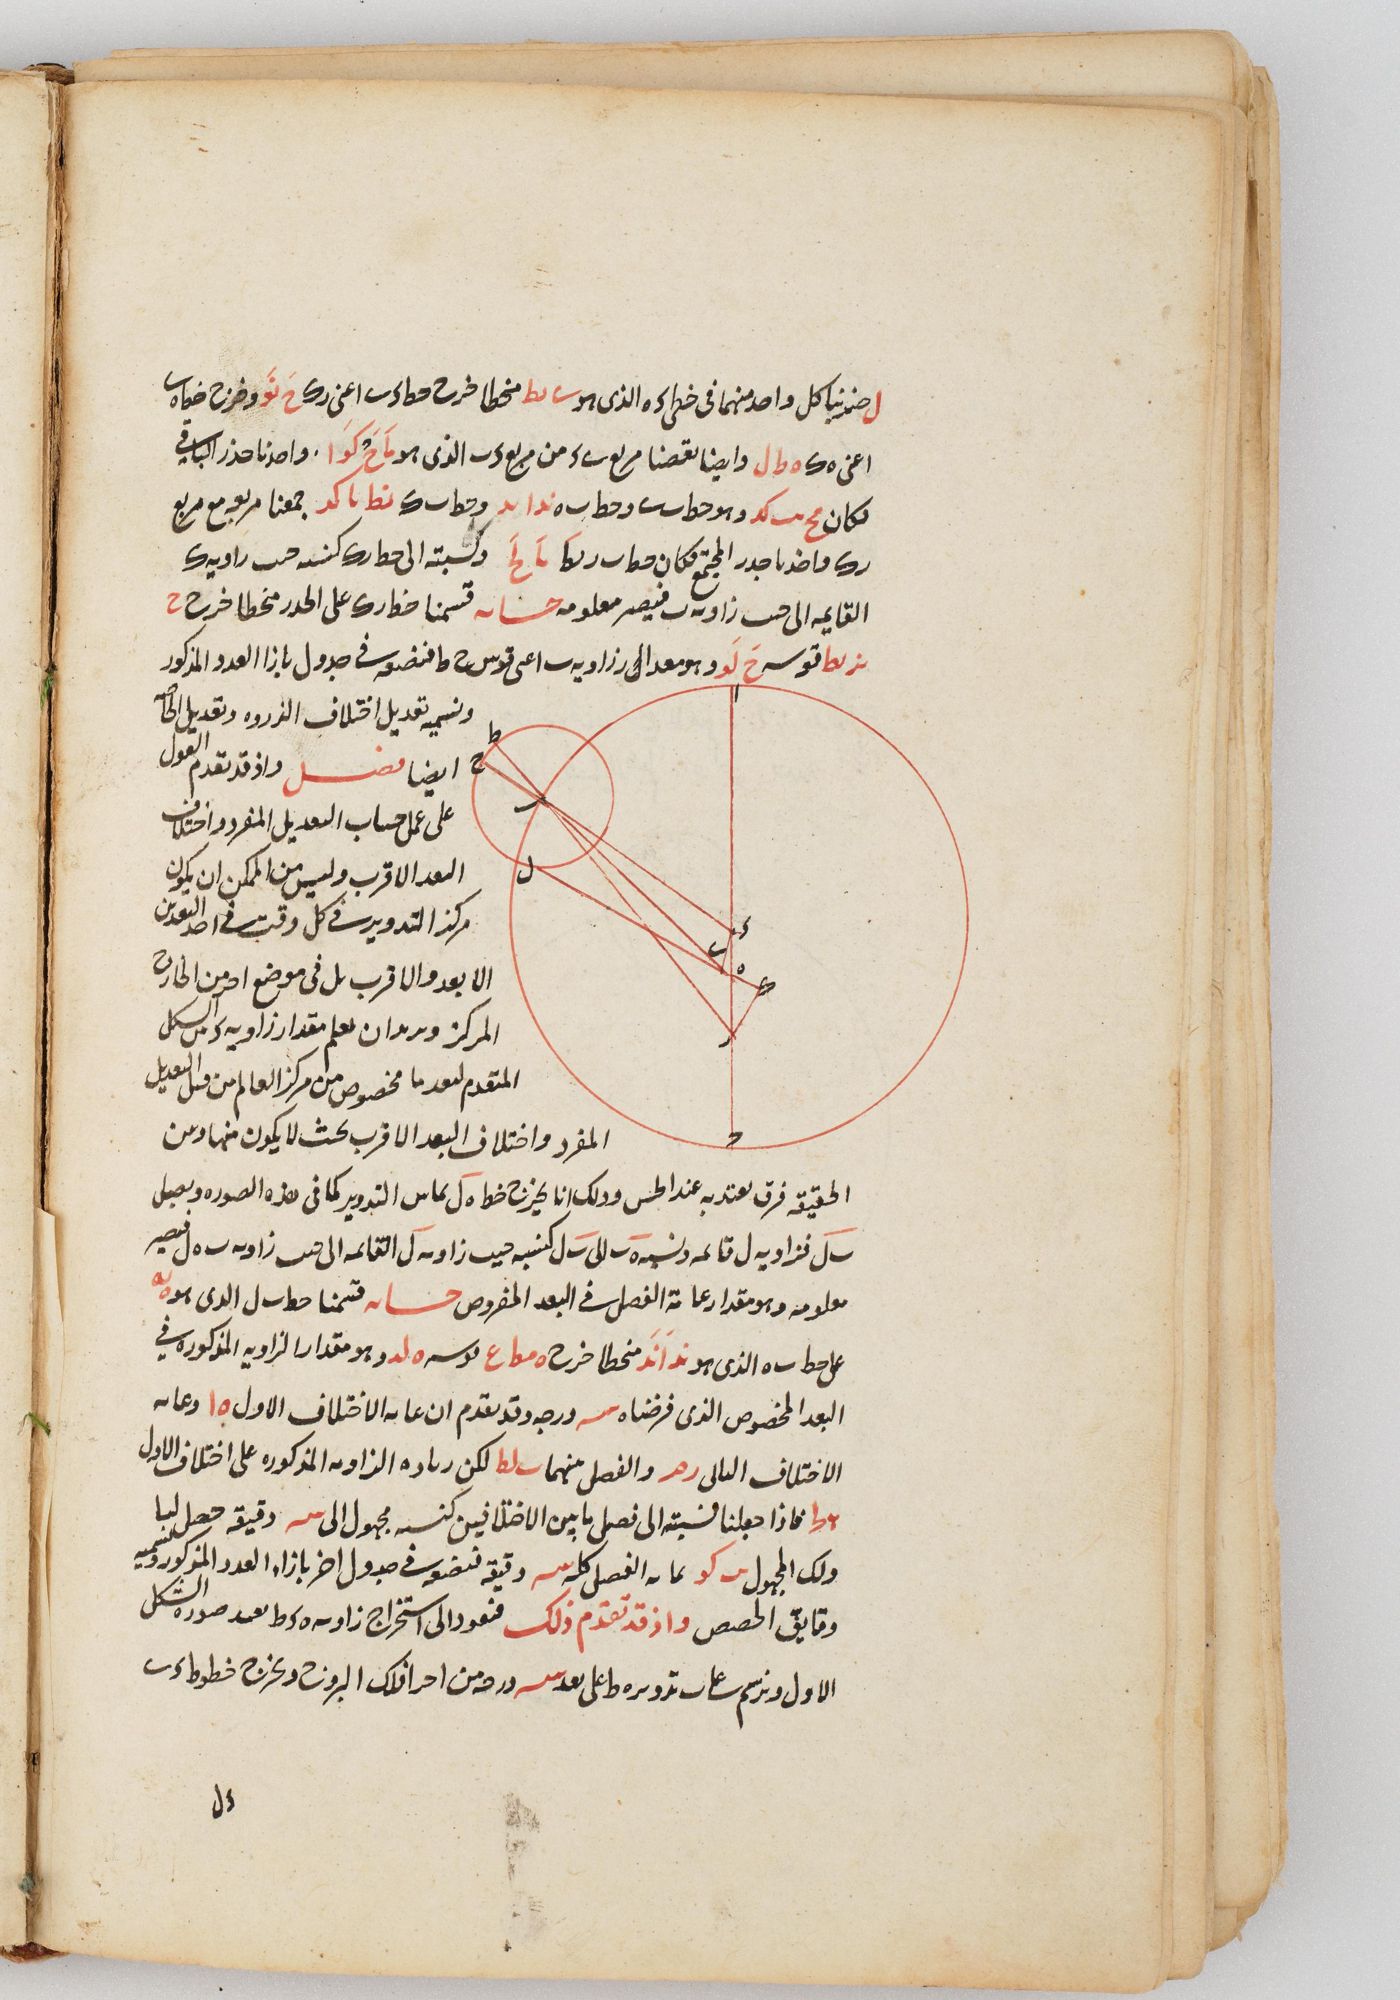 ل ضربنا كل واحد منهما في خط ءه الذي هو ى ىط منحطا خرج خطا ءب اعنى رك ح نو وخرج خط اه
اعنى ه ك ه ط ل وايضا نقصنا مربع ب ء من مربع ءب الذي هو واخذنا جذر الباقي
فكان مح ىب كد وهو خط وخط ب ه ند ا ىد وخط ب ك نط ىا كد جمعنا مربعه مع مربع
رك واخذنا جذر المجتمع فكان خط ب ر نط ونسبته الى خط رك كنسبه جيب زاويه ك
القايمه الى جيب زاويه ب فيصير معلومه حسابه قسمنا خط رك على الجذر منحطا خرج ح
ىز ىط قوسه ح لو وهو معدل زاويه ب اعنى قوس ح ط فنضعه في جدول بازا العدد المذكور
ونسميه تعديل اختلاف الذروه وتعديل الخاصه
ايضا فصل واذ قد تقدم القول
على عمل حساب التعديل المفرد واختلاف
البعد الاقرب وليس من الممكن ان يكون
مركز التدوير في كل وقت في احد البعدين
الابعد والاقرب بل في موضع اخر من الخارج
المركز ونريد ان نعلم مقدار زاويه من الشكل
المتقدم لبعد ما مخصوص من مركز العالم من قبل التعديل
المفرد واختلاف البعد الاقرب بحيث لا يكون منها وبين
الحقيقه فرق يعتد به عند الحس وذلك انا نخرج خط ه ل يماس التدوير كما في هذه الصوره ونصل
ب ل فزاويه ل قائمه ونسبه ه ب الى ب ل كنسبه جيب زاويه ل القائمه الى جيب زاويه ب ه ل فيصير
معلومه وهو مقدار غاية الفصل في البعد المفروض حسابه قسمنا خط ب ل الذي هو ه
على خط ب ه الذي هو ند ا ند منحطا خرج ه قوسه ه لد وهو مقدار الزاويه المذكوره في
البعد المخصوص الذي فرضناه س درجه وقد تقدم ان غايه الاختلاف الاول ه ا وغايه
الاختلاف الثاني والفصل منهما ب لط لكن زياده الزاويه المذكوره على اختلاف الاول
فاذا جعلنا نسبته الى فصل ما بين الاختلافين كنسبه مجهول الى س دقيقه حصل لنا
ذلك المجهول ىب كو غايه الفصل كله س دقيقه فنضعه في جدول اخر بازاء العدد المذكور ونسميه
دقايق الحصص واذ قد تقدم ذلك فنعود الى استخراج زاويه ه ء ط نعيد صوره الشكل
الاول ونرسم على ب تدوير ه ط على بعد س درجه من اجزا فلك البروج ونخرج خطوط ءب
ا
ط
ح
ب
ل
ء
ب
ه
ك
ر
ج
ءل